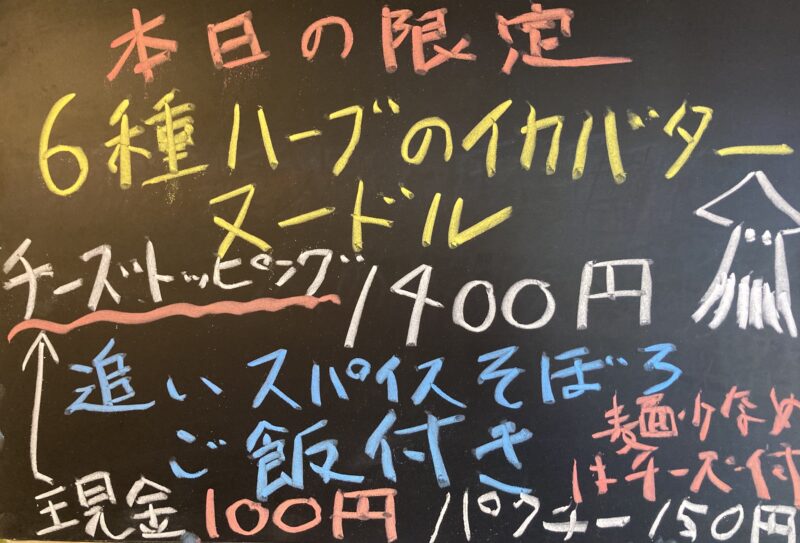 本日の限定
6種ハーブのイカバター
ヌードル
チーズトッピング 1400円
追いスパイスそぼろ
ご飯付き
麺少なめ
はチーズ付
現金100円 パクチー150円